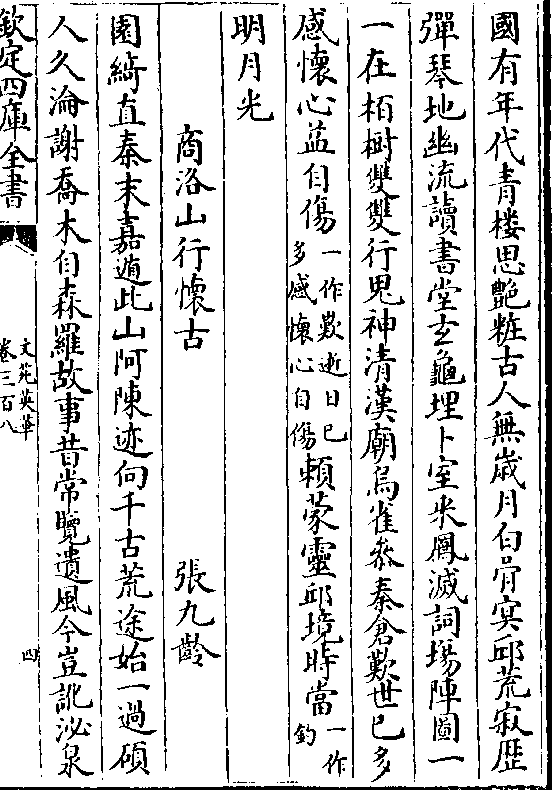 國有年代青楼思艶粧古人無歳月白骨㝠邱荒寂歴
彈琴地幽流讀書堂玄龜埋卜室米鳳滅詞場陣圖一
一在栢樹雙雙行鬼神清漢廟鳥雀叅秦倉歎世已多
感懷心益自傷一作歎逝日已多感懷心自傷頼蒙靈邱境時當一作鈞
明月光
商洛山行懷古 張九齡
園綺直秦末嘉遁此山阿陳迹向千古荒途始一過碩
人久淪謝喬木自森羅故事昔常覽遺風今豈訛泌泉
欽定四庫全書
文苑英華
卷三百八
四